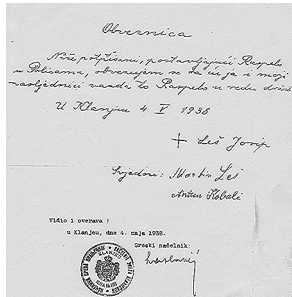 Obveznica
Niže potpisani, postavljajući Raspelo
u Policama, obvezujem se da ću ja i moji
nasljednici vazda to Raspelo u redu držati
U Klanjcu 4 V 1936
+ Leš Josip
Svjedoci: Martin Leš
Antun Kobali
Vidio i overava!
u Klanjcu, dne 4. maja 1938.
Sreski načelnik: